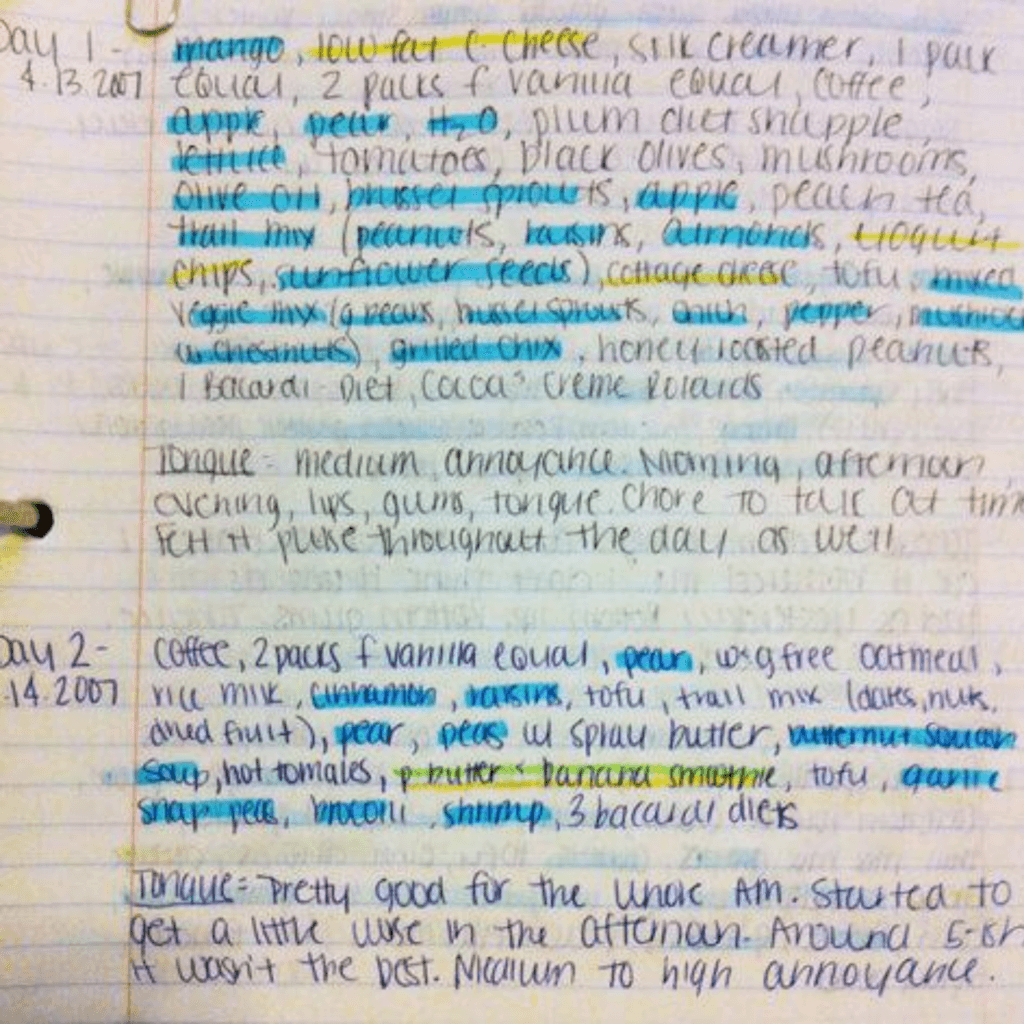 Day 1 - mango, low fat C. Cheese, silk creamer, 1 pack
4.13.2007 equal, 2 packs f. vanilla equal, coffee,
apple, pear, H₂O, plum diet snapple
lettuce, tomatoes, black olives, mushrooms,
Olive oil, brussel sprouts, apple, peach tea,
trail mix (peanuts, raisins, almonds, yogurt
chips, sunflower seeds), cottage cheese, tofu, mixed
veggie mix (g beans, brussel sprouts, onion, pepper, mushroo
w. chestnuts), grilled chix, honey roasted peanuts,
1 Bacardi Diet, Cocoa Créme Rolaids
Tongue - medium annoyance. Morning, afternoon
evening, lips, gums, tongue. Chore to talk at time
Felt it pulse throughout the day as well
Day 2 - coffee, 2 packs f vanilla equal, pear, w&g free oatmeal,
.14.2007 rice milk, cinnamon, raisins, tofu, trail mix (dates, nuts,
dried fruit), pear, peas w/ spray butter, butternut squash
soup, hot tomales, p. butter & banana smoothie, tofu, garlic
snap peas, brocolli, shrimp, 3 baccardi diets
Tongue = Pretty good for the whole AM. Started to
get a little worse in the afternoon. Around 5-ish
it wasn't the best. Medium to high annoyance.